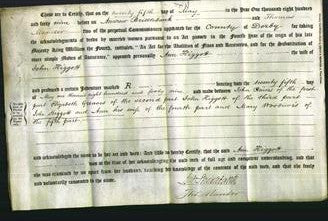 These are to Certify, that on the twenty fifth day of May in the Year One thousand eight hundred
and forty nine before us Andrew Brittlebank and Thomas
two of the perpetual Commissioners appointed for the County of Derby for taking
the acknowledgments of deeds by married women pursuant to an Act passed in the fourth year of the reign of his late
Majesty King William the Fourth, intituled, "An Act for the Abolition of Fines and Recoveries, and for the Substitution of
more simple Modes of Assurance," appeared personally Ann Higgott the wife of
John Higgott
and produced a certain Indenture marked R bearing date the twenty fifth
day of May one thousand eight hundred and forty nine and made between John
part Elizabeth Greaves of the second part John Higgott of the third part
John Higgott and Ann his wife of the fourth part and Mary of
the fifth part
and acknowledged the same to be her act and deed: And We do hereby Certify, that the said Ann Higgott
was at the time of her acknowledging the said deed of full age and competent understanding, and that
she was examined by us apart from her husband, touching her knowledge of the contents of the said deed, and that she freely
and voluntarily consented to the same.